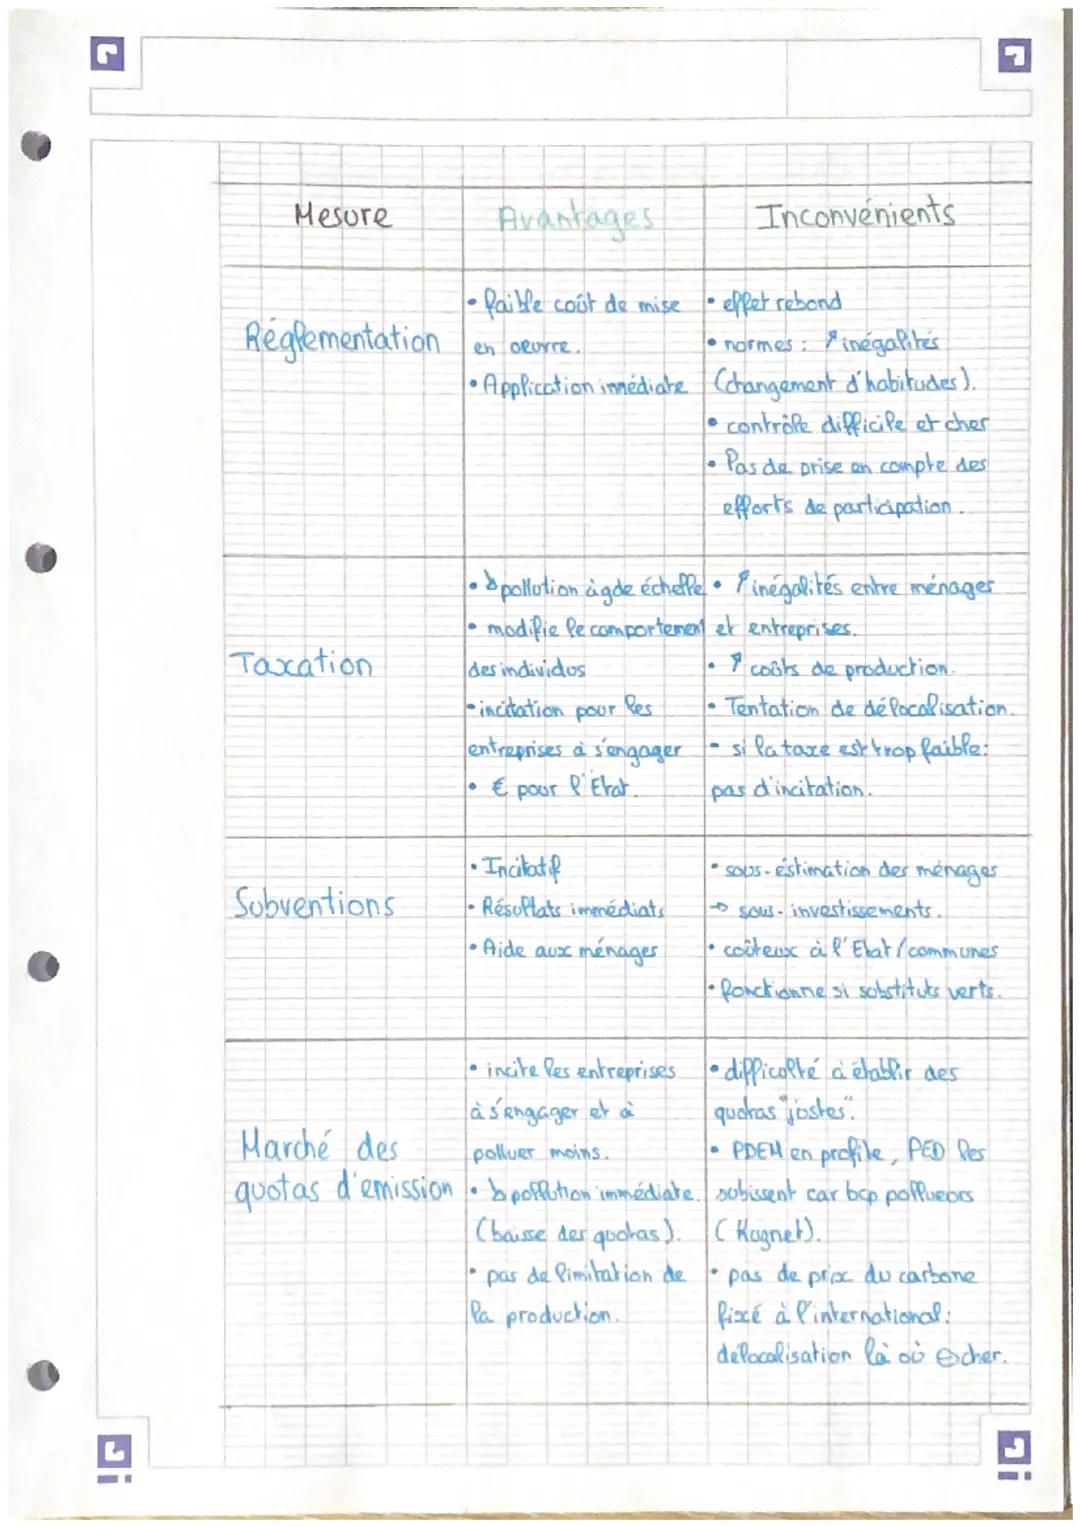 Mesure
Avantages
Inconvénients
Réglementation
• faible coût de mise
en oeuvre.
• Application immédiate
• effet rebond
• normes : ↗ inégalités
(changement d'habitudes).
• contrôle difficile et cher
• Pas de prise en compte des
efforts de participation.
Taxation
• ↘ pollution à gde échelle
• modifie le comportement
des individus
• incitation pour les
entreprises à s'engager
• € pour l'Etat.
• ↗ inégalités entre ménages
et entreprises.
• ↗ coûts de production.
• Tentation de délocalisation.
- si la taxe est trop faible:
pas d'incitation.
Subventions
• Incitatif
• Résultats immédiats
• Aide aux ménages
• sous-estimation des ménages
→ sous-investissements.
• coûteux à l'Etat/communes
• fonctionne si substituts verts.
Marché des
quotas d'émission
• incite les entreprises
à s'engager et à
polluer moins.
• ↘ pollution immédiate.
(baisse des quotas).
• pas de limitation de
la production.
• difficulté à établir des
quotas "justes".
• PDEM en profite, PED les
subissent car bcp pollueurs
(Kugnet).
• pas de prix du carbone
fixé à l'international:
délocalisation là où ⊖ cher.